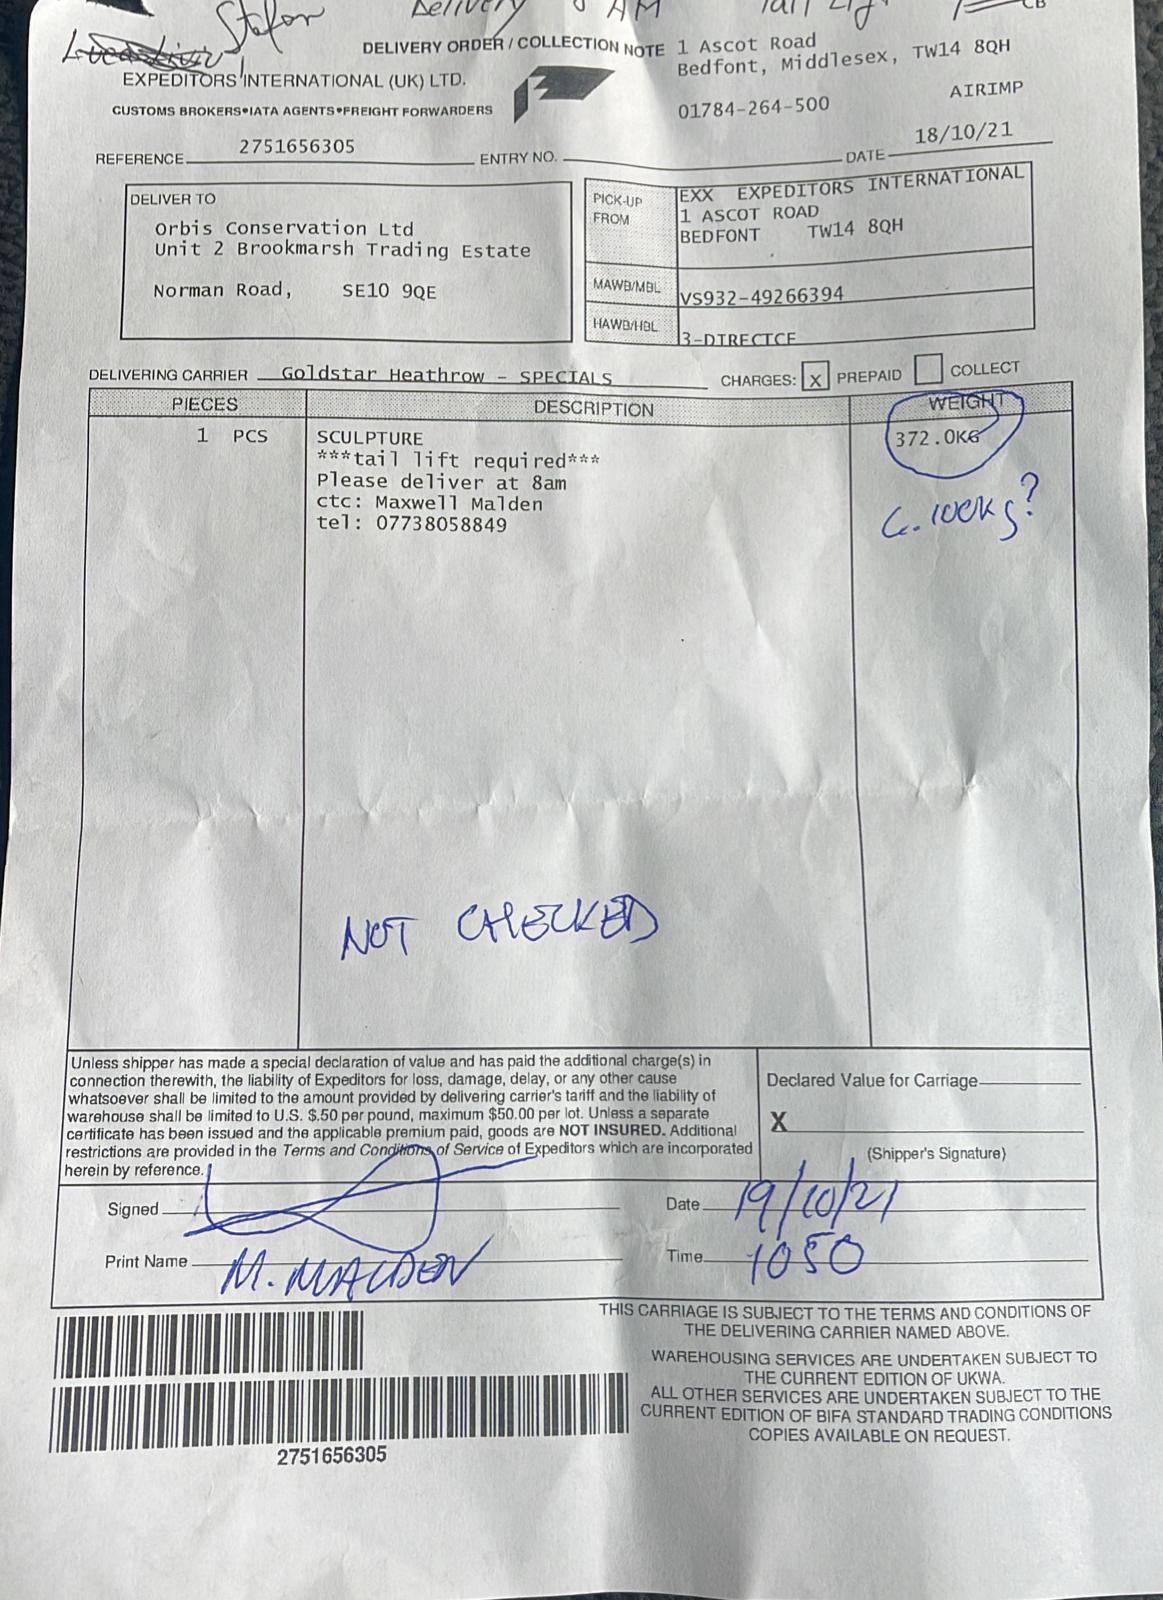 Stefan Delivery 8 AM Tail Lift CB
DELIVERY ORDER / COLLECTION NOTE
1 Ascot Road
Bedfont, Middlesex, TW14 8QH
EXPEDITORS INTERNATIONAL (UK) LTD.
CUSTOMS BROKERS•IATA AGENTS•FREIGHT FORWARDERS
01784-264-500
AIRIMP
REFERENCE 2751656305 ENTRY NO. DATE 18/10/21
DELIVER TO
Orbis Conservation Ltd
Unit 2 Brookmarsh Trading Estate
Norman Road, SE10 9QE
PICK-UP FROM
EXX EXPEDITORS INTERNATIONAL
1 ASCOT ROAD
BEDFONT TW14 8QH
MAWB/MBL VS932-49266394
HAWB/HBL 3-DIRECTCE
DELIVERING CARRIER Goldstar Heathrow - SPECIALS CHARGES: X PREPAID COLLECT
PIECES DESCRIPTION WEIGHT
1 PCS SCULPTURE 372.0KG
***tail lift required***
Please deliver at 8am
ctc: Maxwell Malden
tel: 07738058849
c. 100kgs?
NOT CHECKED
Unless shipper has made a special declaration of value and has paid the additional charge(s) in
connection therewith, the liability of Expeditors for loss, damage, delay, or any other cause
whatsoever shall be limited to the amount provided by delivering carrier's tariff and the liability of
warehouse shall be limited to U.S. $.50 per pound, maximum $50.00 per lot. Unless a separate
certificate has been issued and the applicable premium paid, goods are NOT INSURED. Additional
restrictions are provided in the Terms and Conditions of Service of Expeditors which are incorporated
herein by reference.
Declared Value for Carriage
X
(Shipper's Signature)
Signed Date 19/10/21
Print Name M. MALDEN Time 1050
THIS CARRIAGE IS SUBJECT TO THE TERMS AND CONDITIONS OF
THE DELIVERING CARRIER NAMED ABOVE.
WAREHOUSING SERVICES ARE UNDERTAKEN SUBJECT TO
THE CURRENT EDITION OF UKWA.
ALL OTHER SERVICES ARE UNDERTAKEN SUBJECT TO THE
CURRENT EDITION OF BIFA STANDARD TRADING CONDITIONS
COPIES AVAILABLE ON REQUEST.
2751656305